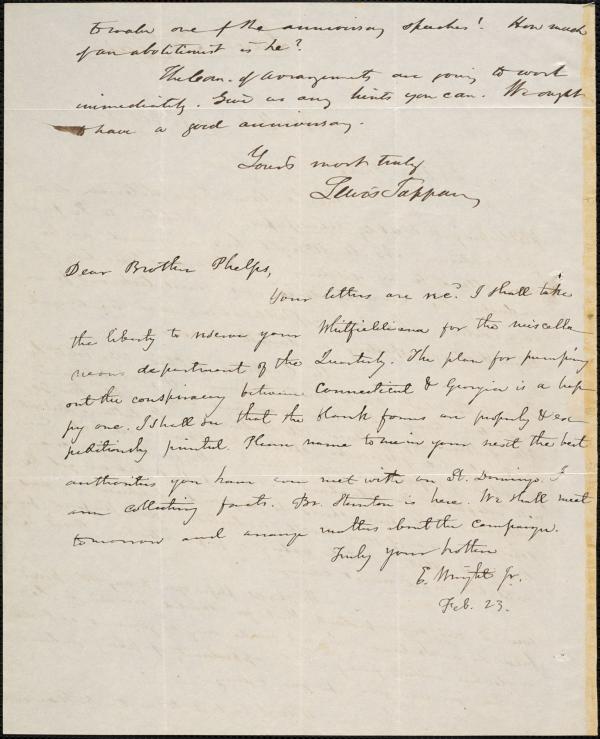 to make one of the anniversary speeches! How much
of an abolitionist is he?
The Com. of Arrangements are going to work
immediately. Give us any hints you can. We ought
to have a good anniversary.
Yours most truly
Lewis Tappan
Dear Brother Phelps,
Your letters are rec? I shall take
the liberty to reserve your Whitfieldiana for the miscella
neous department of the Quarterly. The plan for pumping
out the conspiracy between Connecticut & Georgia is a hap
py one. I shall see that the blank forms are properly & ex
peditiously printed. Please name to me in your next the best
authorities you have ever met with on St. Domingo. I
am collecting facts. Br. Stanton is here. We shall meet
tomorrow and arrange matters about the campaign.
Truly your brother
E. Wright Jr.
Feb. 23.